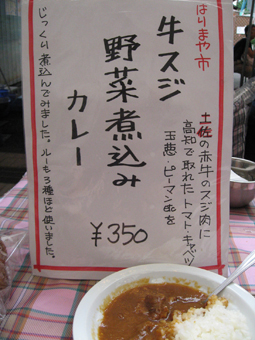 はりまや市
牛スジ
野菜煮込み
カレー
¥350
土佐の赤牛のスジ肉に
高知で取れたトマト・キャベツ
玉恵・ピーマンetcを
じっくり煮込んでみました。ルーも3種ほど使いました。